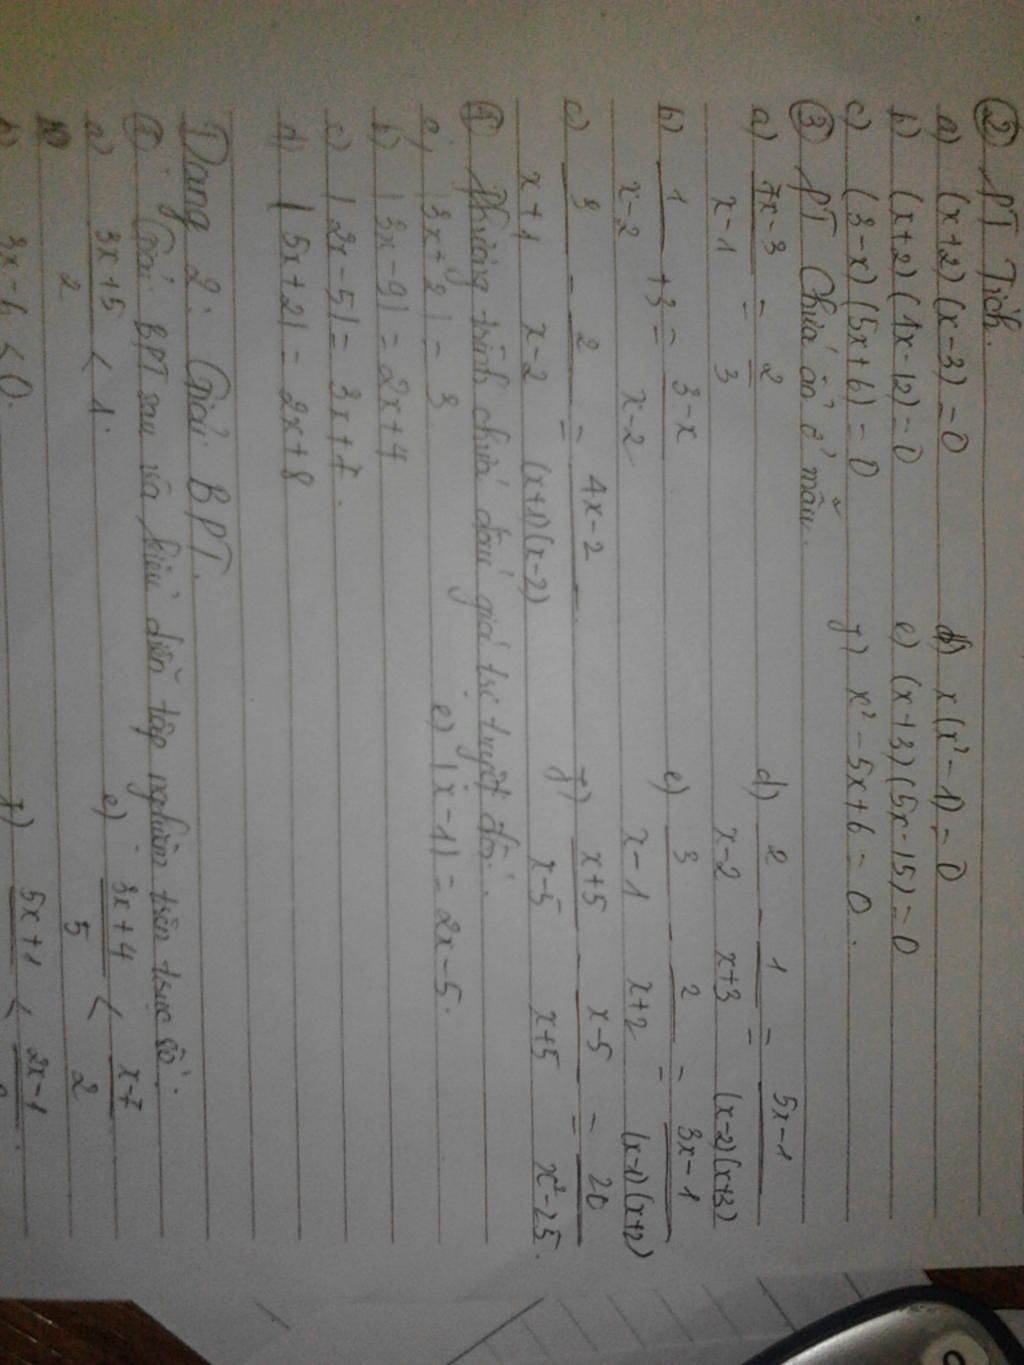 ② PT Tích.
a) (x+2)(x-3)=0    d) x(x²-1)=0
b) (x+2)(4x-12)=0    e) (x+3)(5x-15)=0
c) (3-x)(5x+6)=0    f) x²-5x+6=0.
③ PT Chứa ẩn ở mẫu.
a) (7x-3)/(x-1) = 2/3    d) 2/(x-2) - 1/(x+3) = (5x-1)/((x-2)(x+3))
b) 1/(x-2) + 3 = (3-x)/(x-2)    e) 3/(x-1) - 2/(x+2) = (3x-1)/((x-1)(x+2))
c) 3/(x+1) - 2/(x-2) = (4x-2)/((x+1)(x-2))    f) (x+5)/(x-5) - (x-5)/(x+5) = 20/(x²-25).
④ Phương trình chứa dấu giá trị tuyệt đối.
a, |3x+2| = 3    e) |x-1| = 2x-5.
b) |3x-9| = 2x+4
c) |2x-5| = 3x+7.
d) |5x+2| = 2x+8
Dạng 2: Giải BPT.
①. Giải BPT sau và biểu diễn tập nghiệm trên trục số.
a) (3x+5)/2 < 1.    e) (3x+4)/5 < (x-7)/2
b) 3x-6 ≤ 0.    f) (5x+1) < (2x-1)